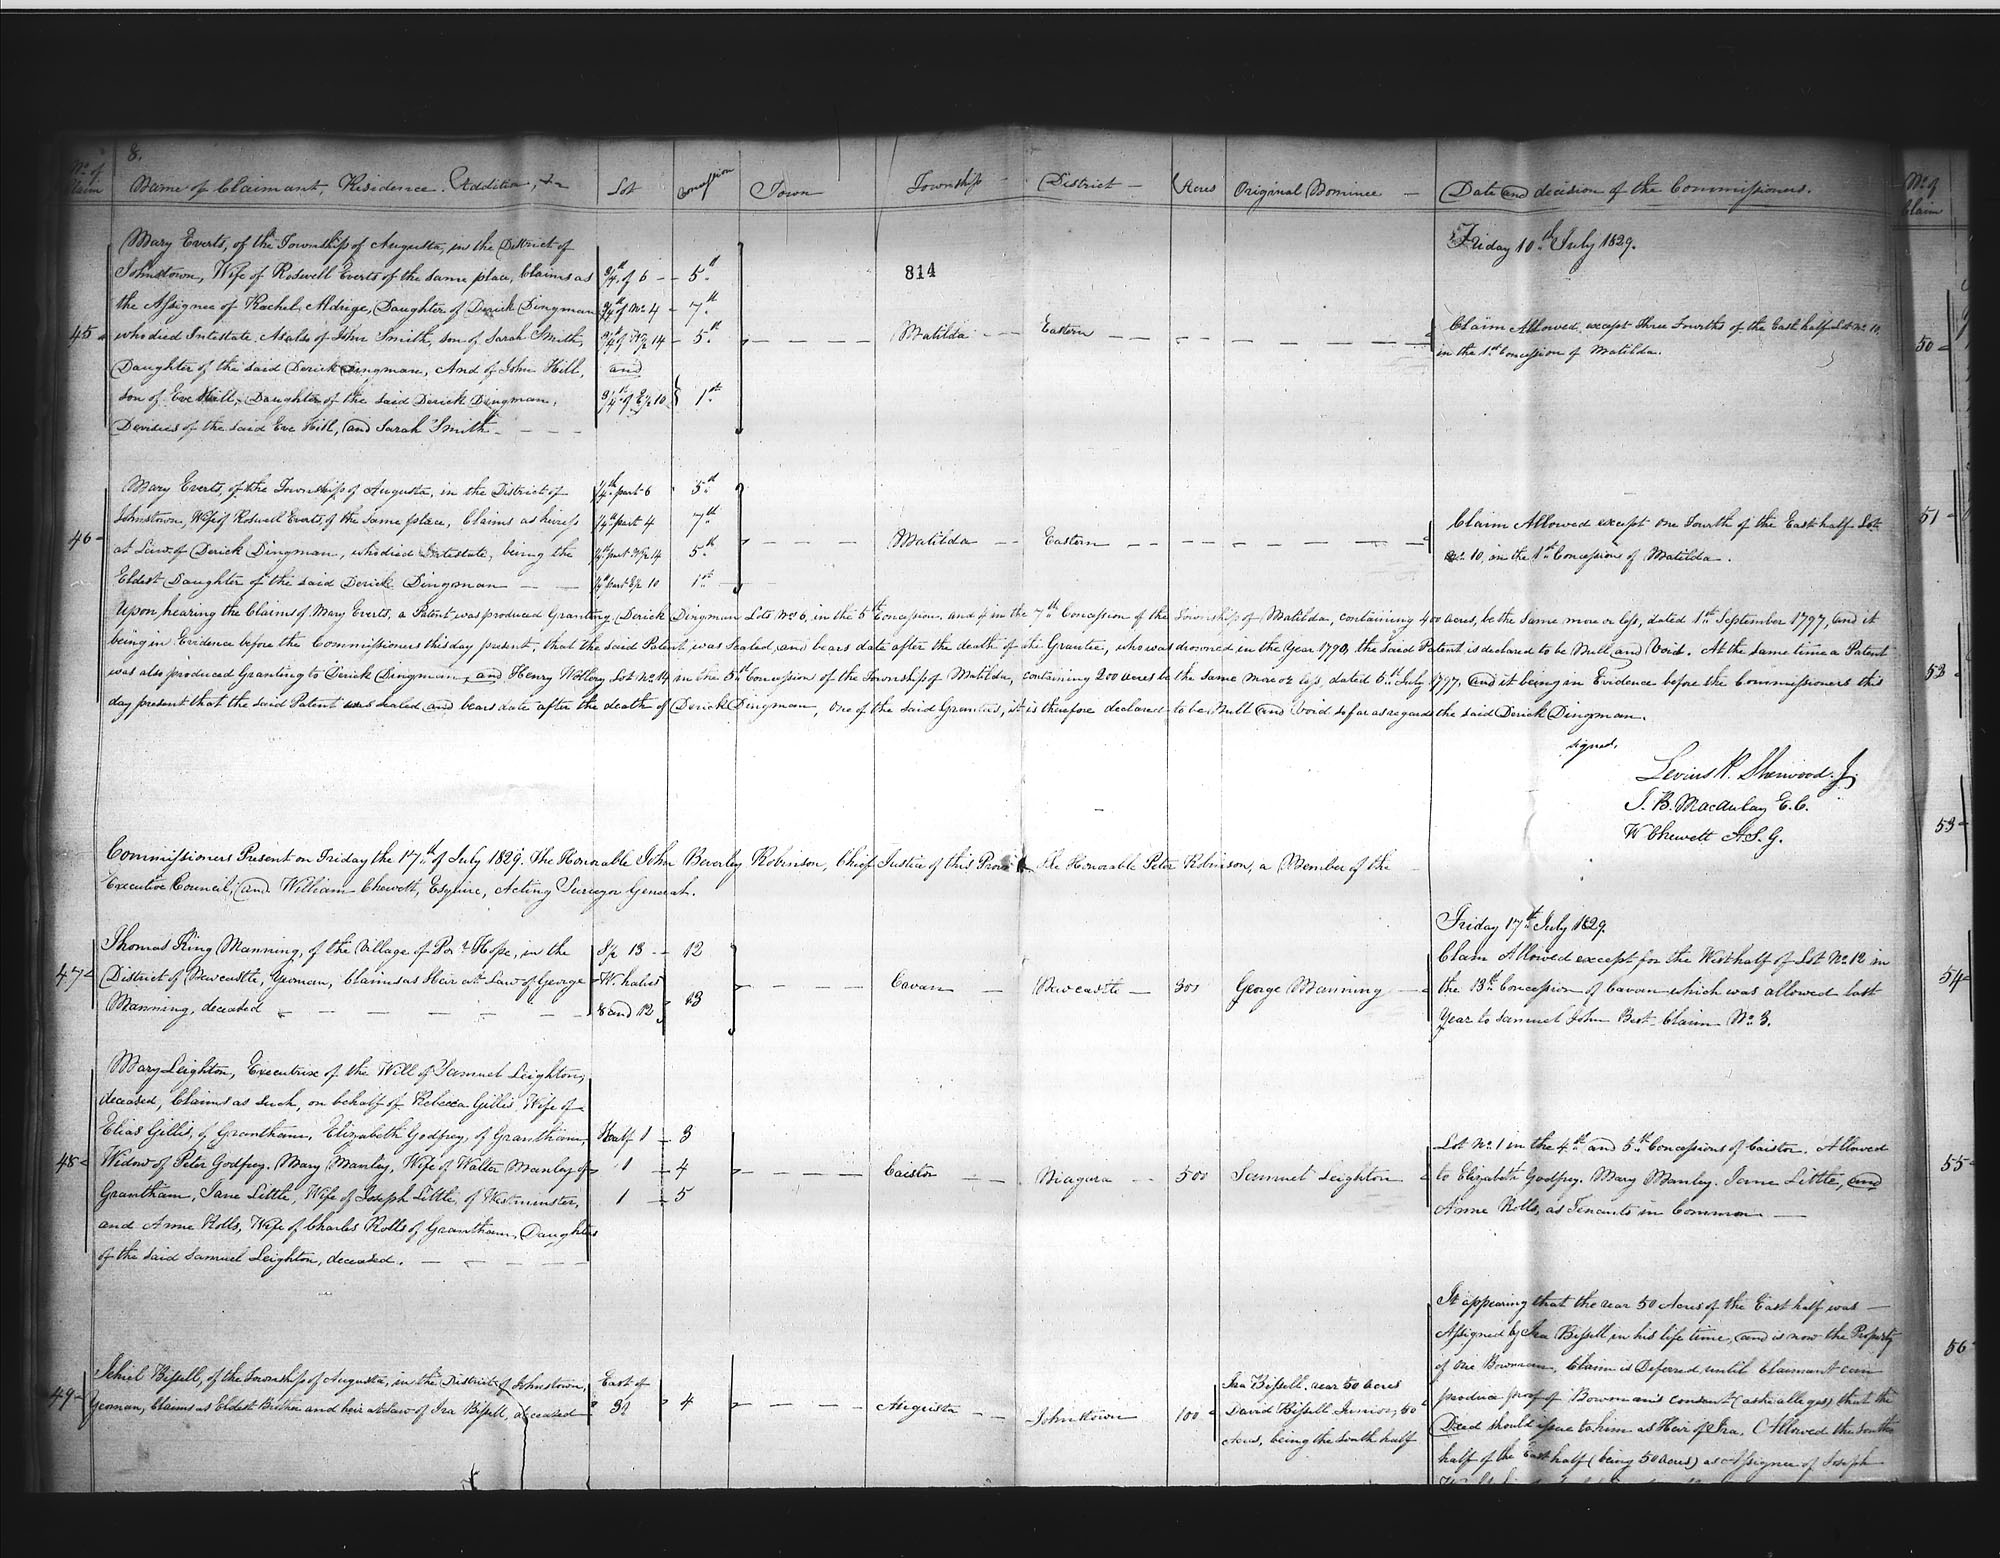 8.
No. of Claim
Name of Claimant, Residence. Addition, &c
Lot
Concession
Town
Township
District
Acres
Original Nominee
Date and decision of the Commissioners.
No. of Claim
814
Friday 10th July 1829.
45
Mary Everts, of the Township of Augusta, in the District of
Johnstown, Wife of Roswell Everts of the same place, Claims as
the Assignee of Rachel Aldrige, Daughter of Derick Dingman
who died Intestate, Also of John Smith, son of Sarah Smith,
Daughter of the said Derick Dingman, And of John Hill,
son of Eve Hill, Daughter of the said Derick Dingman,
Devisees of the said Eve Hill, and Sarah Smith
3/4th of 6 - 5th
3/4th of No 4 - 7th
3/4th of W 1/2 14 - 5th
and
3/4th of E 1/2 10 } 1st
Matilda
Eastern
Claim Allowed, except Three Fourths of the East half Lot No. 10,
in the 1st Concession of Matilda.
50
46
Mary Everts, of the Township of Augusta, in the District of
Johnstown, Wife of Roswell Everts, of the same place, Claims as heiress
at Law of Derick Dingman, who died Intestate, being the
Eldest Daughter of the said Derick Dingman
1/4th part 6 5th
1/4th part 4 7th
1/4th part W 1/2 14 5th
1/4th part E 1/2 10 1st
Matilda
Eastern
Claim Allowed except One Fourth of the East half Lot
No. 10, in the 1st Concession of Matilda.
51
Upon hearing the Claims of Mary Everts, a Patent was produced Granting Derick Dingman Lots No. 6, in the 5th Concession, and 4 in the 7th Concession of the Township of Matilda, containing 400 acres, be the same more or less, dated 1st September 1797, and it
being in Evidence before the Commissioners this day present, that the said Patent was Sealed, and bears date after the death of the Grantee, who was drowned in the Year 1790, the said Patent is declared to be Null and Void. At the same time a Patent
was also produced Granting to Derick Dingman, and Henry Lot No. 14, in the 5th Concession of the Township of Matilda, containing 200 acres be the same more or less, dated 5th July 1797, and it being in Evidence before the Commissioners this
day present that the said Patent was sealed and bears date after the death of Derick Dingman, One of the said Grantees, it is therefore declared to be Null and Void so far as regards the said Derick Dingman.
52
signed,
Levius P. Sherwood. J.
J. B. Macaulay E.C.
W Chewett A.S.G.
53
Commissioners Present on Friday the 17th of July 1829. The Honorable John Beverley Robinson, Chief Justice of this Province the Honorable Peter Robinson, a Member of the
Executive Council, and William Chewett, Esquire, Acting Surveyor General.
Friday 17th July 1829.
47
Thomas King Manning, of the Village of Port Hope, in the
District of Newcastle, Yeoman, Claims as Heir at Law of George
Manning, deceased
S 1/2 13 - 12
W. halves
8 and 12 } 13
Cavan
Newcastle
300
George Manning
Claim Allowed except for the West half of Lot No. 12 in
the 13th Concession of Cavan which was allowed last
Year to Samuel John Best Claim No. 3.
54
48
Mary Leighton, Executrix of the Will of Samuel Leighton,
deceased, Claims as such, on behalf of Rebecca Gillis Wife of
Elias Gillis, of Grantham, Elizabeth Godfrey, of Grantham,
Widow of Peter Godfrey. Mary Manley, Wife of Walter Manley of
Grantham, Jane Little, Wife of Joseph Little, of Westminster,
and Anne Rolls, Wife of Charles Rolls of Grantham, Daughters
of the said Samuel Leighton, deceased.
Half 1 - 3
1 - 4
1 - 5
Caistor
Niagara
500
Samuel Leighton
Lot No. 1 in the 4th and 5th Concessions of Caistor. Allowed
to Elizabeth Godfrey. Mary Manley. Jane Little, and
Anne Rolls, as Tenants in Common
55
49
Jehiel Bissell, of the Township of Augusta, in the District of Johnstown,
Yeoman, Claims as Eldest Brother and heir at Law of Ira Bissell, deceased
East of
4
Augusta
Johnstown
100
Ira Bissell, rear 50 acres
David Bissell Junior, 50
Acres, being the South half
It appearing that the rear 50 Acres of the East half was
Assigned by Ira Bissell in his life time, and is now the Property
of one Bowman, Claim is Deferred until Claimant can
produce proof of Bowman's consent (as he alleges) that the
Deed should issue to him as Heir of Ira. (Allowed the South
half of the East half (being 50 acres) as Assignee of Joseph
56